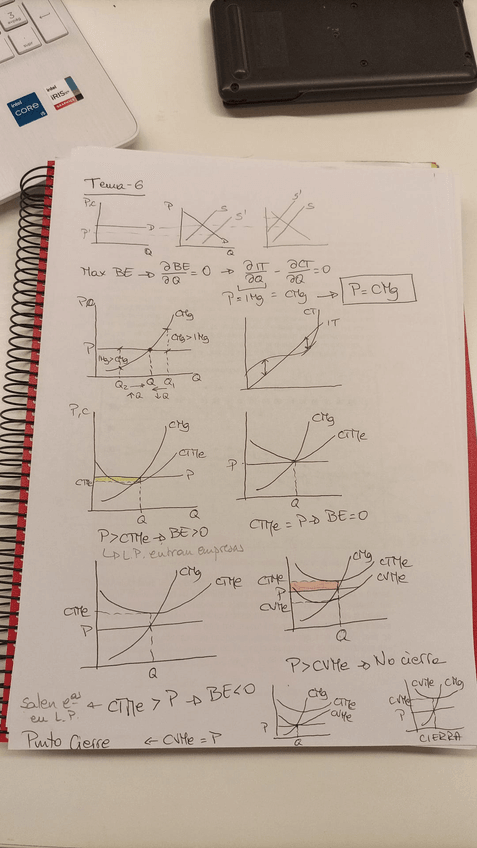 intel
CORE
i5
intel
iRIS xe
GRAPHICS
3
Tema-6
P,C
P'
D
Q
P
S
S'
D
Q
S'
S
Max BE → ∂BE/∂Q = 0 → ∂IT/∂Q - ∂CT/∂Q = 0
P = IMg = CMg → P = CMg
CMg
CMg > IMg
P
IMg > CMg
Q₂ → Q ← Q₁ Q
↑Q ↓Q
CT
IT
P, C
CMg
CTMe
CTMe
P
Q
CMg
CTMe
P
Q
P > CTMe → BE > 0
CTMe = P → BE = 0
↳ L.P. entran empresas
CMg
CTMe
CTMe
P
Q
CMg
CTMe
CVMe
CTMe
P
CVMe
Q
P > CVMe → No cierre
Salen eas en L.P. ← CTMe > P → BE < 0
Punto Cierre ← CVMe = P
CMg
CTMe
CVMe
P
Q
CVMe CMg
CVMe
P
CIERRA